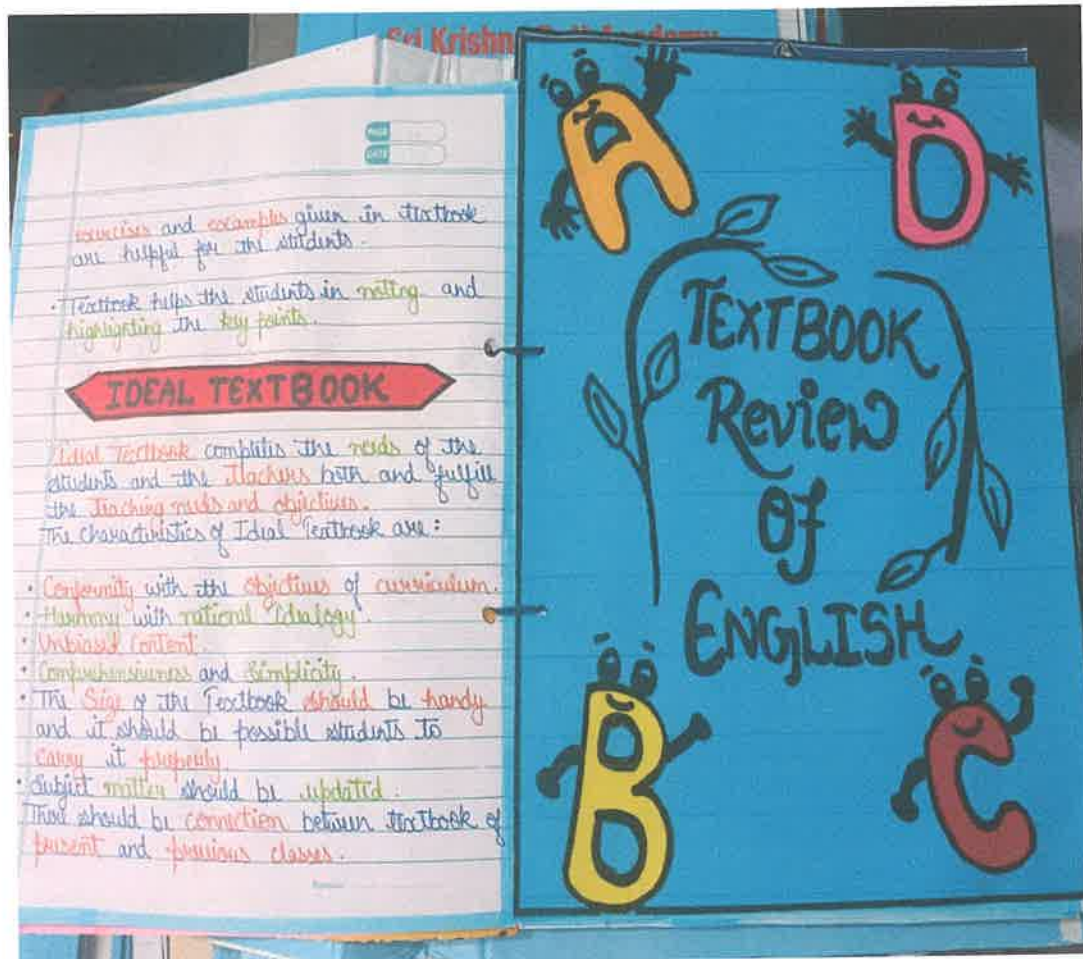 Sri Krishn
Academy
PAGE
DATE
exercises and examples given in textbook
are helpful for the students.
• Textbook helps the students in noting and
highlighting the key points.
IDEAL TEXTBOOK
Ideal Textbook completes the needs of the
students and the Teachers both and fulfill
the Teaching needs and objectives.
The characteristics of Ideal Textbook are:
• Conformity with the objectives of curriculum.
• Harmony with national Idealogy.
• Unbiased Content.
• Comprehensiveness and Simplicity.
• The Size of the Textbook should be handy
and it should be possible students to
carry it properly.
• Subject matter should be updated.
There should be connection between textbook of
present and previous classes.
A D
TEXTBOOK
Review
Of
ENGLISH
B C